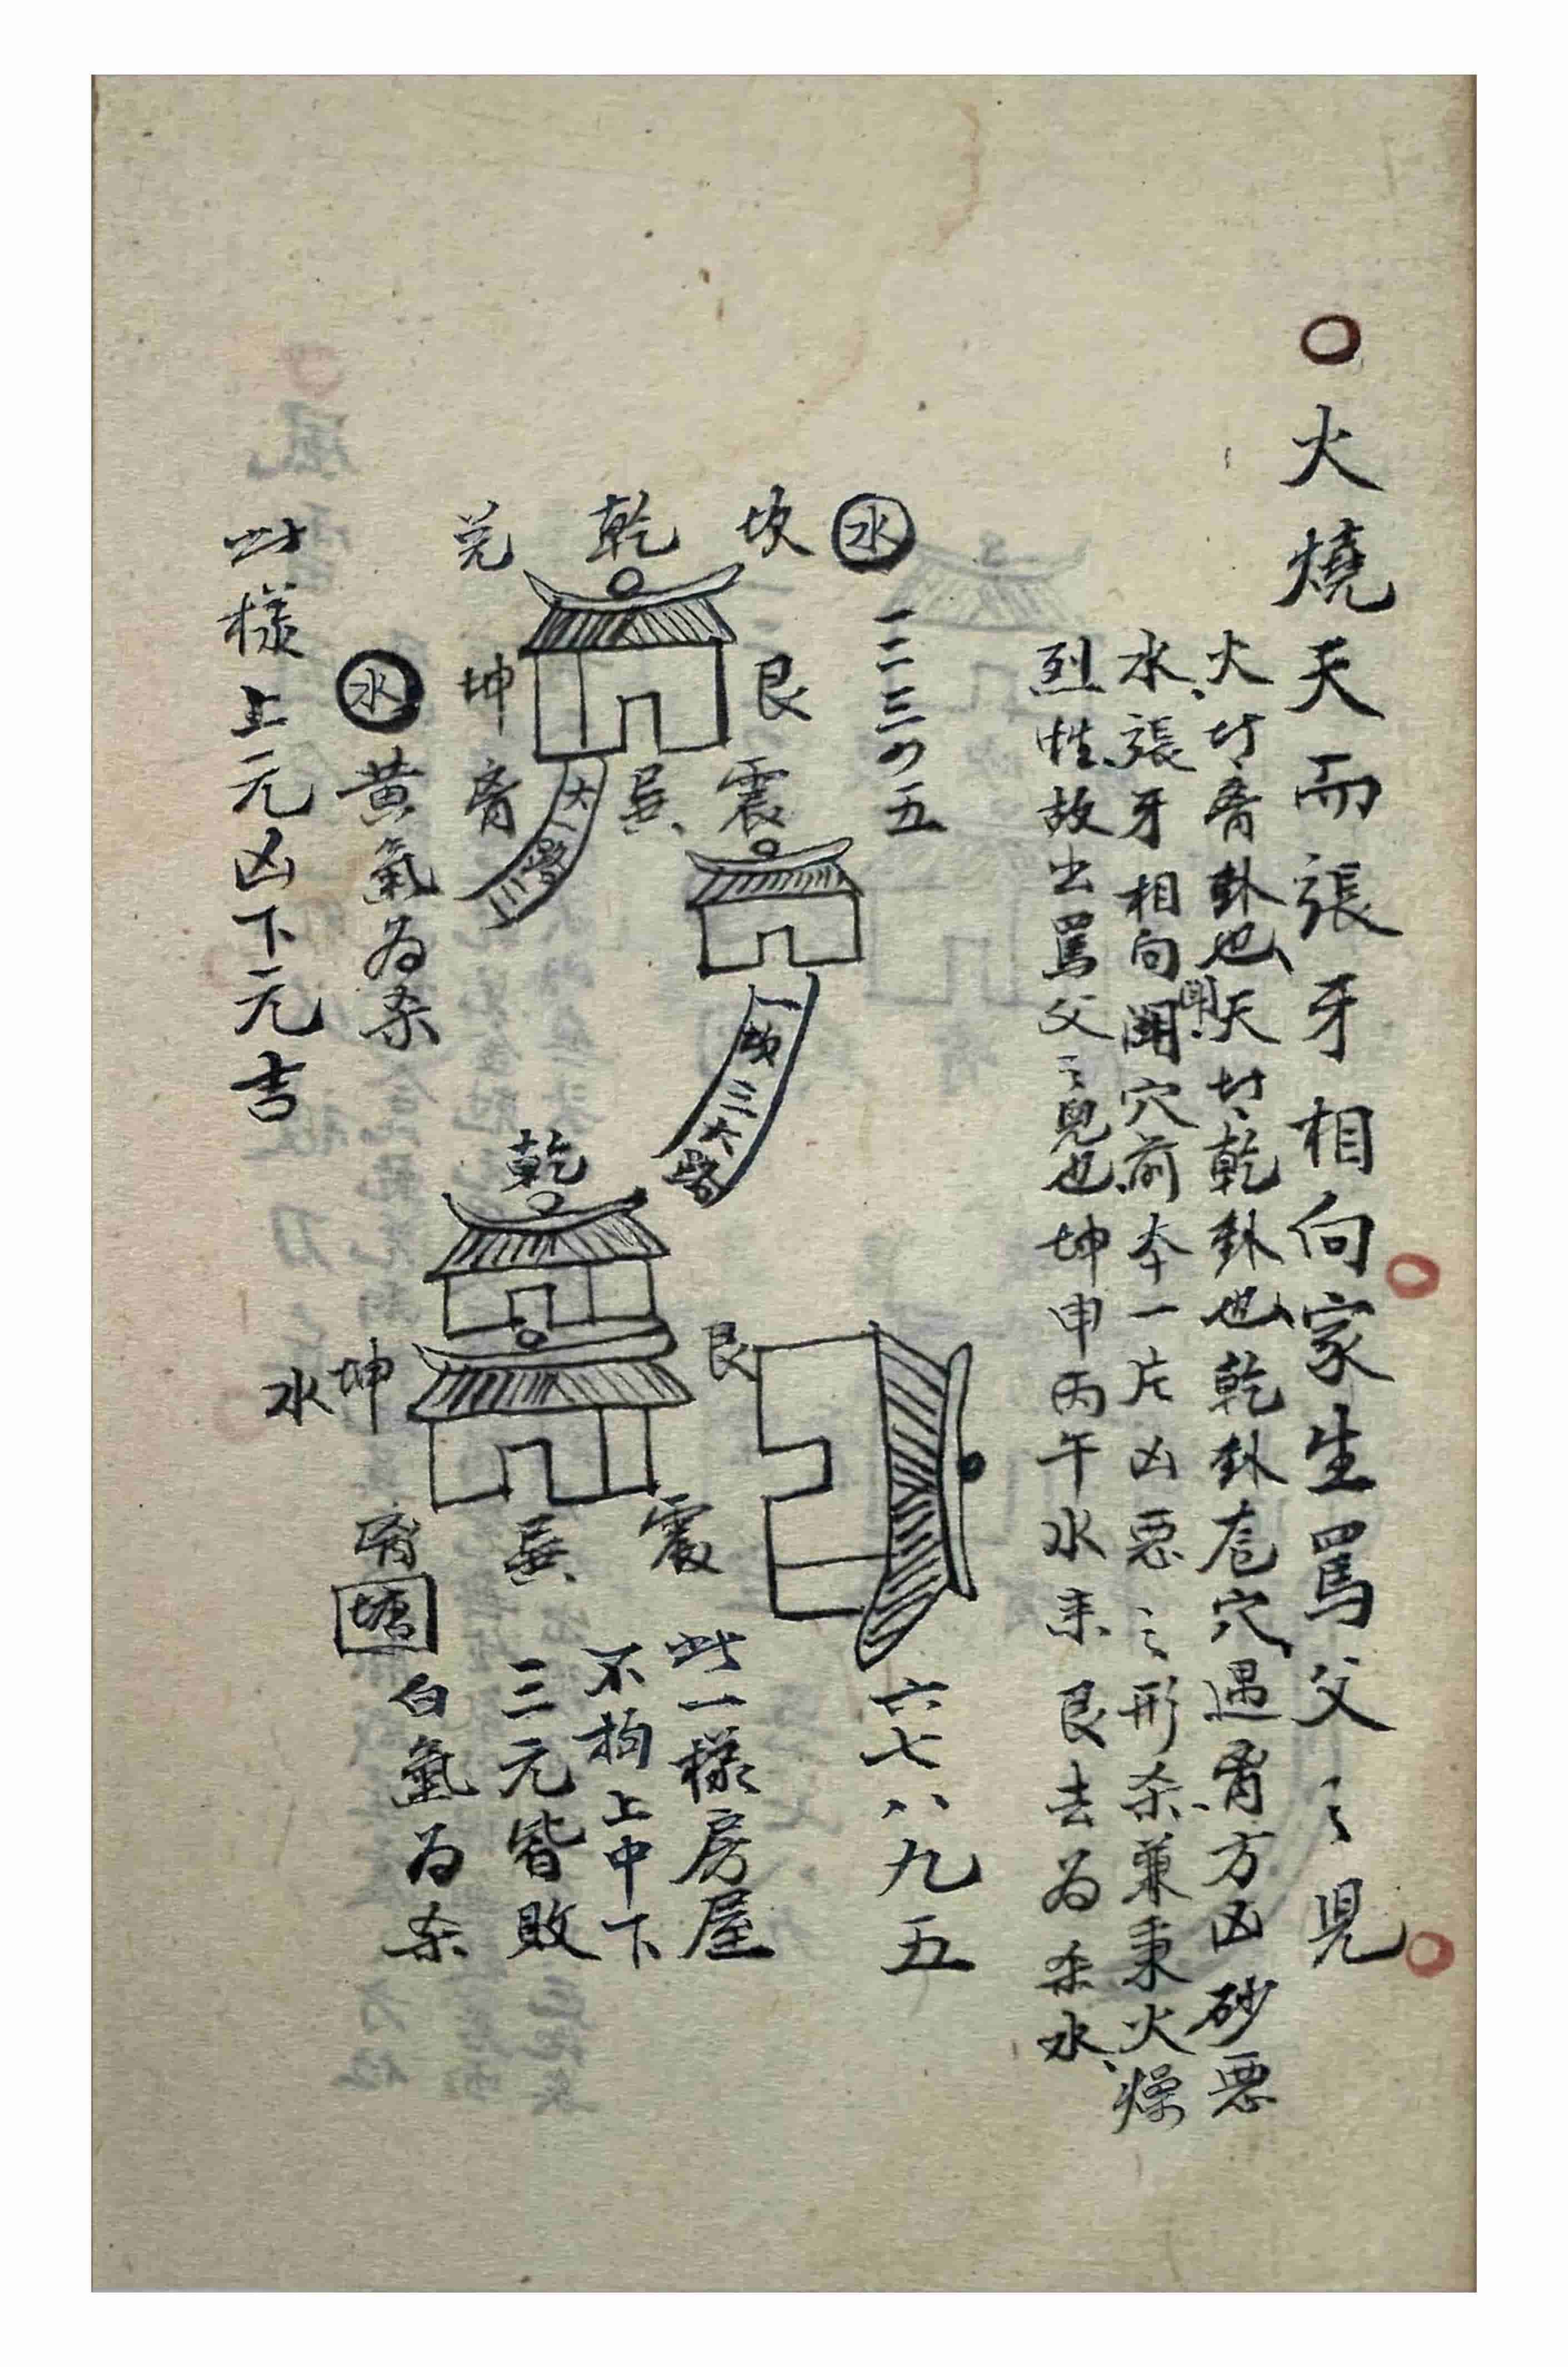 火燒天而張牙相向家生罵父之兒
火廿离卦也天廿乾卦也乾卦卮穴遇离方凶砂惡
水張牙相向開穴前夲一片凶惡之形杀兼秉火燥
烈性故出罵父之兒也坤申丙午水来艮去为杀水
一二三四五
水
坎
乾
兑
艮
坤
震
巽
离
大路三
一坡三大路
水
黄氣为杀
此様上元凶下元吉
六七八九五
乾
艮
坤
水
震
巽
离
塘
此一様房屋
不拘上中下
三元皆敗
白氣为杀